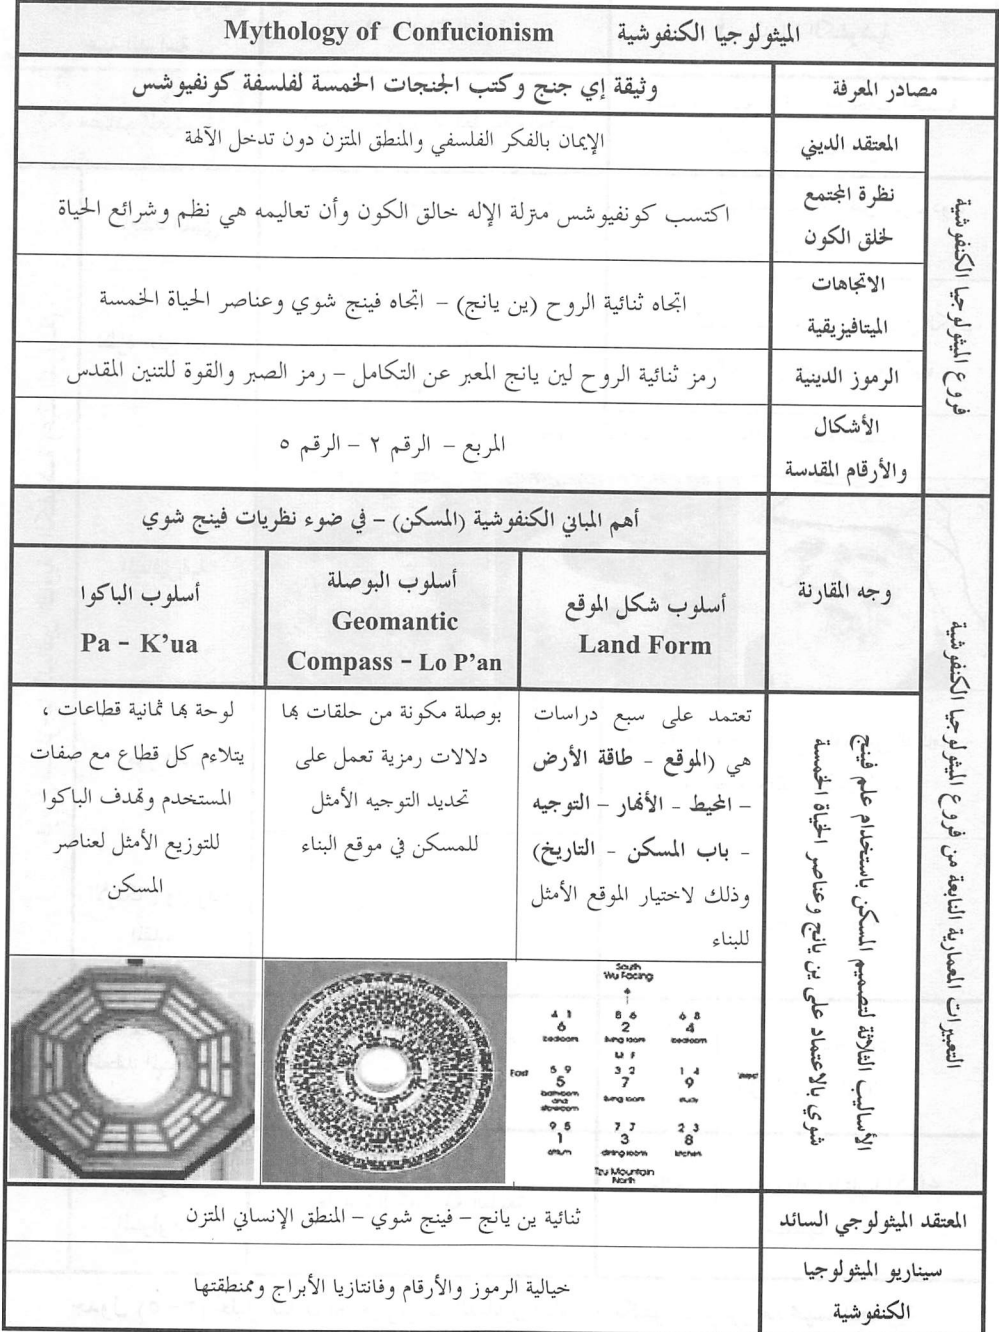 الميثولوجيا الكنفوشية Mythology of Confucionism
مصادر المعرفة
وثيقة إي جنج وكتب الجنجات الخمسة لفلسفة كونفيوشس
فروع الميثولوجيا الكنفوشية
المعتقد الديني
الإيمان بالفكر الفلسفي والمنطق المتزن دون تدخل الآلهة
نظرة المجتمع
لخلق الكون
اكتسب كونفيوشس منزلة الإله خالق الكون وأن تعاليمه هي نظم وشرائع الحياة
الاتجاهات
الميتافيزيقية
اتجاه ثنائية الروح (ين يانج) – اتجاه فينج شوي وعناصر الحياة الخمسة
الرموز الدينية
رمز ثنائية الروح لين يانج المعبر عن التكامل – رمز الصبر والقوة للتنين المقدس
الأشكال
والأرقام المقدسة
المربع – الرقم ٢ – الرقم ٥
التعبيرات المعمارية النابعة من فروع الميثولوجيا الكنفوشية
وجه المقارنة
أهم المباني الكنفوشية (المسكن) – في ضوء نظريات فينج شوي
أسلوب شكل الموقع
Land Form
أسلوب البوصلة
Geomantic
Compass – Lo P'an
أسلوب الباكوا
Pa – K'ua
الأساليب الثلاثة لتصميم المسكن باستخدام علم فينج
شوي بالاعتماد على ين يانج وعناصر الحياة الخمسة
تعتمد على سبع دراسات
هي (الموقع – طاقة الأرض
– المحيط – الأنهار – التوجيه
– باب المسكن – التاريخ)
وذلك لاختيار الموقع الأمثل
للبناء
بوصلة مكونة من حلقات بها
دلالات رمزية تعمل على
تحديد التوجيه الأمثل
للمسكن في موقع البناء
لوحة بها ثمانية قطاعات ،
يتلاءم كل قطاع مع صفات
المستخدم وتهدف الباكوا
للتوزيع الأمثل لعناصر
المسكن
South
Wu Facing
4 1 8 6 6 8
6 2 4
bedroom living room bedroom
East 5 9 3 2 1 4 West
5 7 9
bathroom living room study
and
9 5 7 7 2 3
1 3 8
atrium dining room kitchen
Tzu Mountain
North
المعتقد الميثولوجي السائد
ثنائية ين يانج – فينج شوي – المنطق الإنساني المتزن
سيناريو الميثولوجيا
الكنفوشية
خيالية الرموز والأرقام وفانتازيا الأبراج وممنطقتها